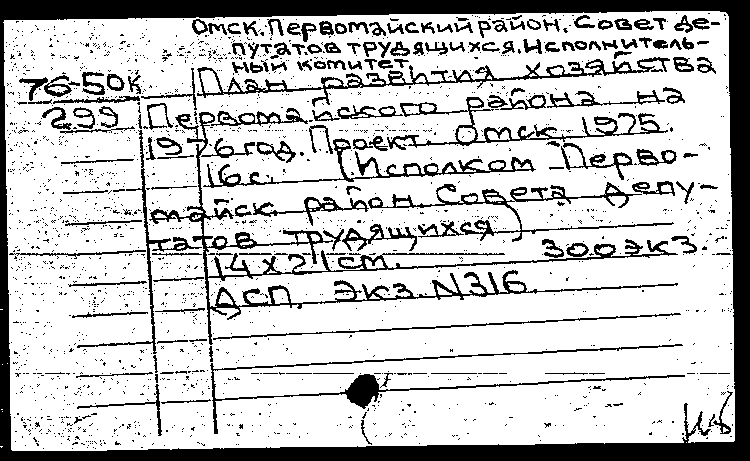 Омск. Первомайский район. Совет де-
путатов трудящихся. Исполнитель-
ный комитет.
76-50к План развития хозяйства
299 Первомайского района на
1976 год. Проект. Омск, 1975.
16 с. (Исполком Перво-
майск. район. Совета депу-
татов трудящихся).
14 x 21 см. 300 экз.
ДСП. Экз. N316.